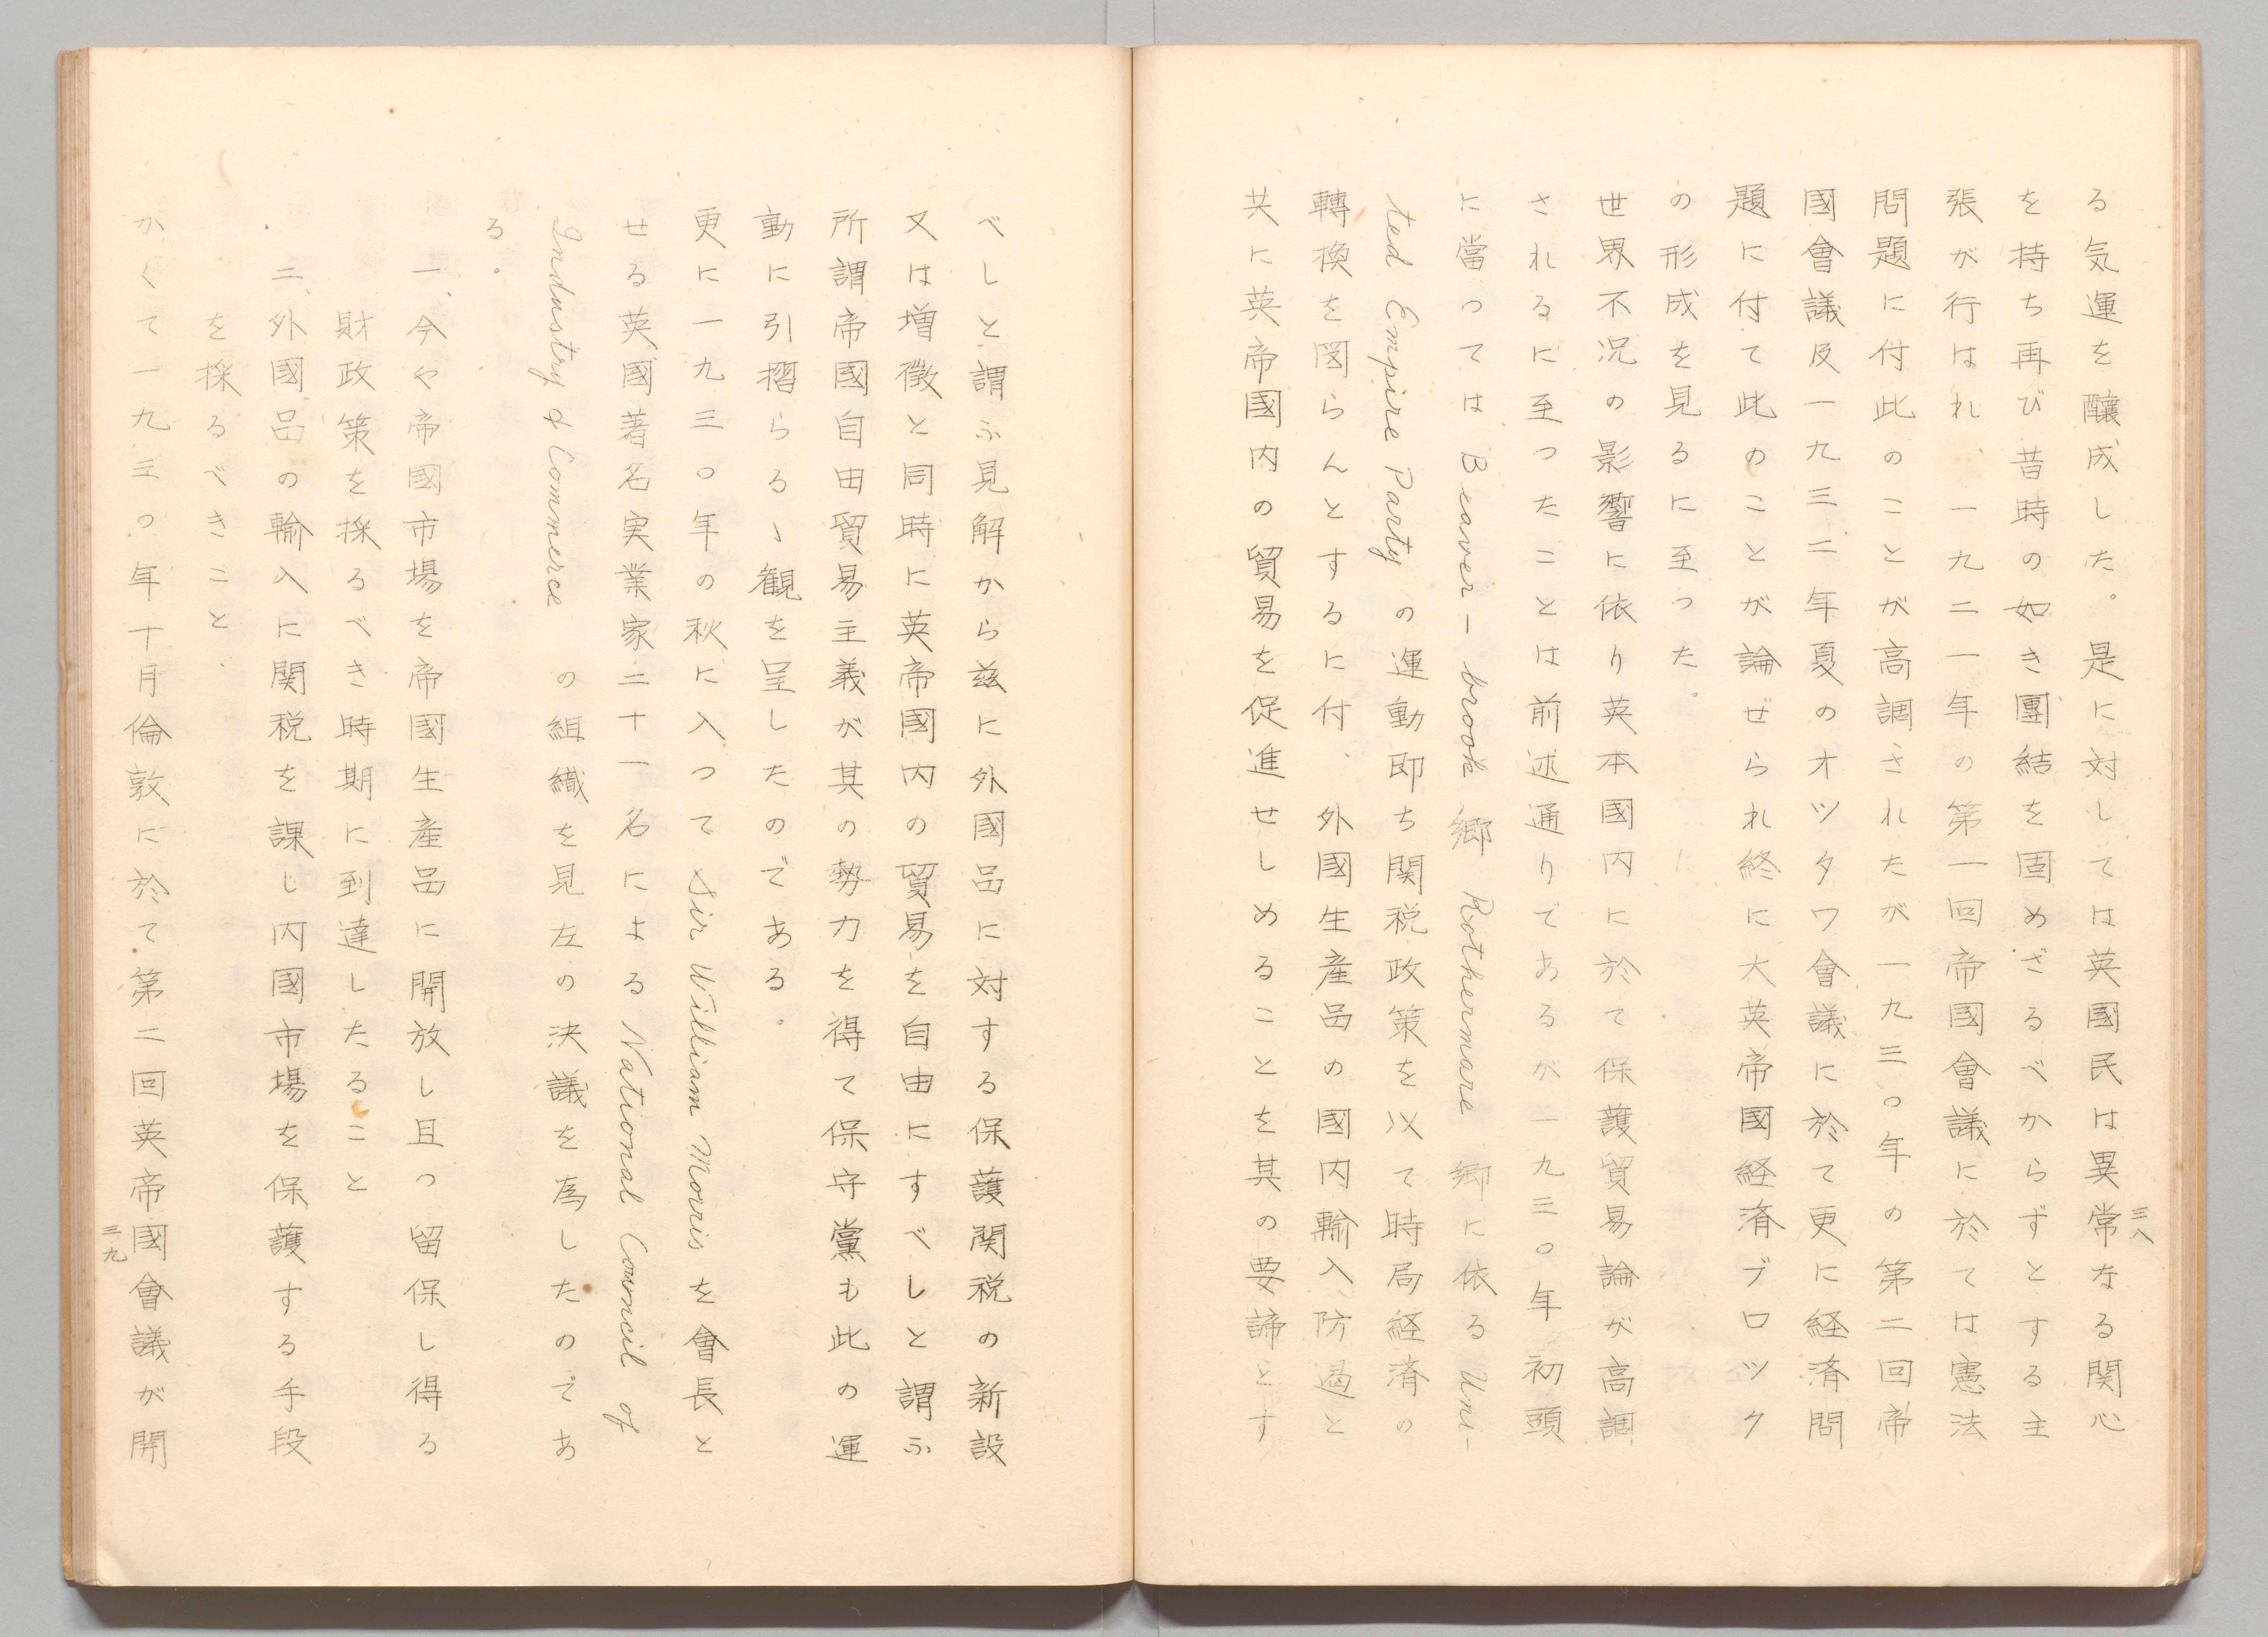 る気運を醸成した。是に対しては英國民は異常なる関心
を持ち再び昔時の如き團結を固めざるべからずとする主
張が行はれ、一九二一年の第一回帝國會議に於ては憲法
問題に付此のことが高調されたが一九三〇年の第二回帝
國會議及一九三二年夏のオツタワ會議に於て更に経済問
題に付て此のことが論ぜられ終に大英帝國経済ブロツク
の形成を見るに至つた。
世界不況の影響に依り英本國内に於て保護貿易論が高調
されるに至つたことは前述通りであるが一九三〇年初頭
に當つては Beaver-brook 郷 Rothermare 郷に依る Uni-
ted Empire Party の運動即ち関税政策を以て時局経済の
轉換を図らんとするに付、外國生産品の國内輸入防遏と
共に英帝國内の貿易を促進せしめることを其の要諦とす
三八
べしと謂ふ見解から玆に外國品に対する保護関税の新設
又は増徴と同時に英帝國内の貿易を自由にすべしと謂ふ
所謂帝國自由貿易主義が其の勢力を得て保守黨も此の運
動に引摺らるゝ観を呈したのである。
更に一九三〇年の秋に入つて Sir William Morris を會長と
せる英國著名実業家二十一名による National Council of
Industry & Commerce の組織を見左の決議を為したのであ
る。
一、今や帝國市場を帝國生産品に開放し且つ留保し得る
財政策を採るべき時期に到達したること
二、外國品の輸入に関税を課し内國市場を保護する手段
を採るべきこと、
かくて一九三〇年十月倫敦に於て第二回英帝國會議が開
三九